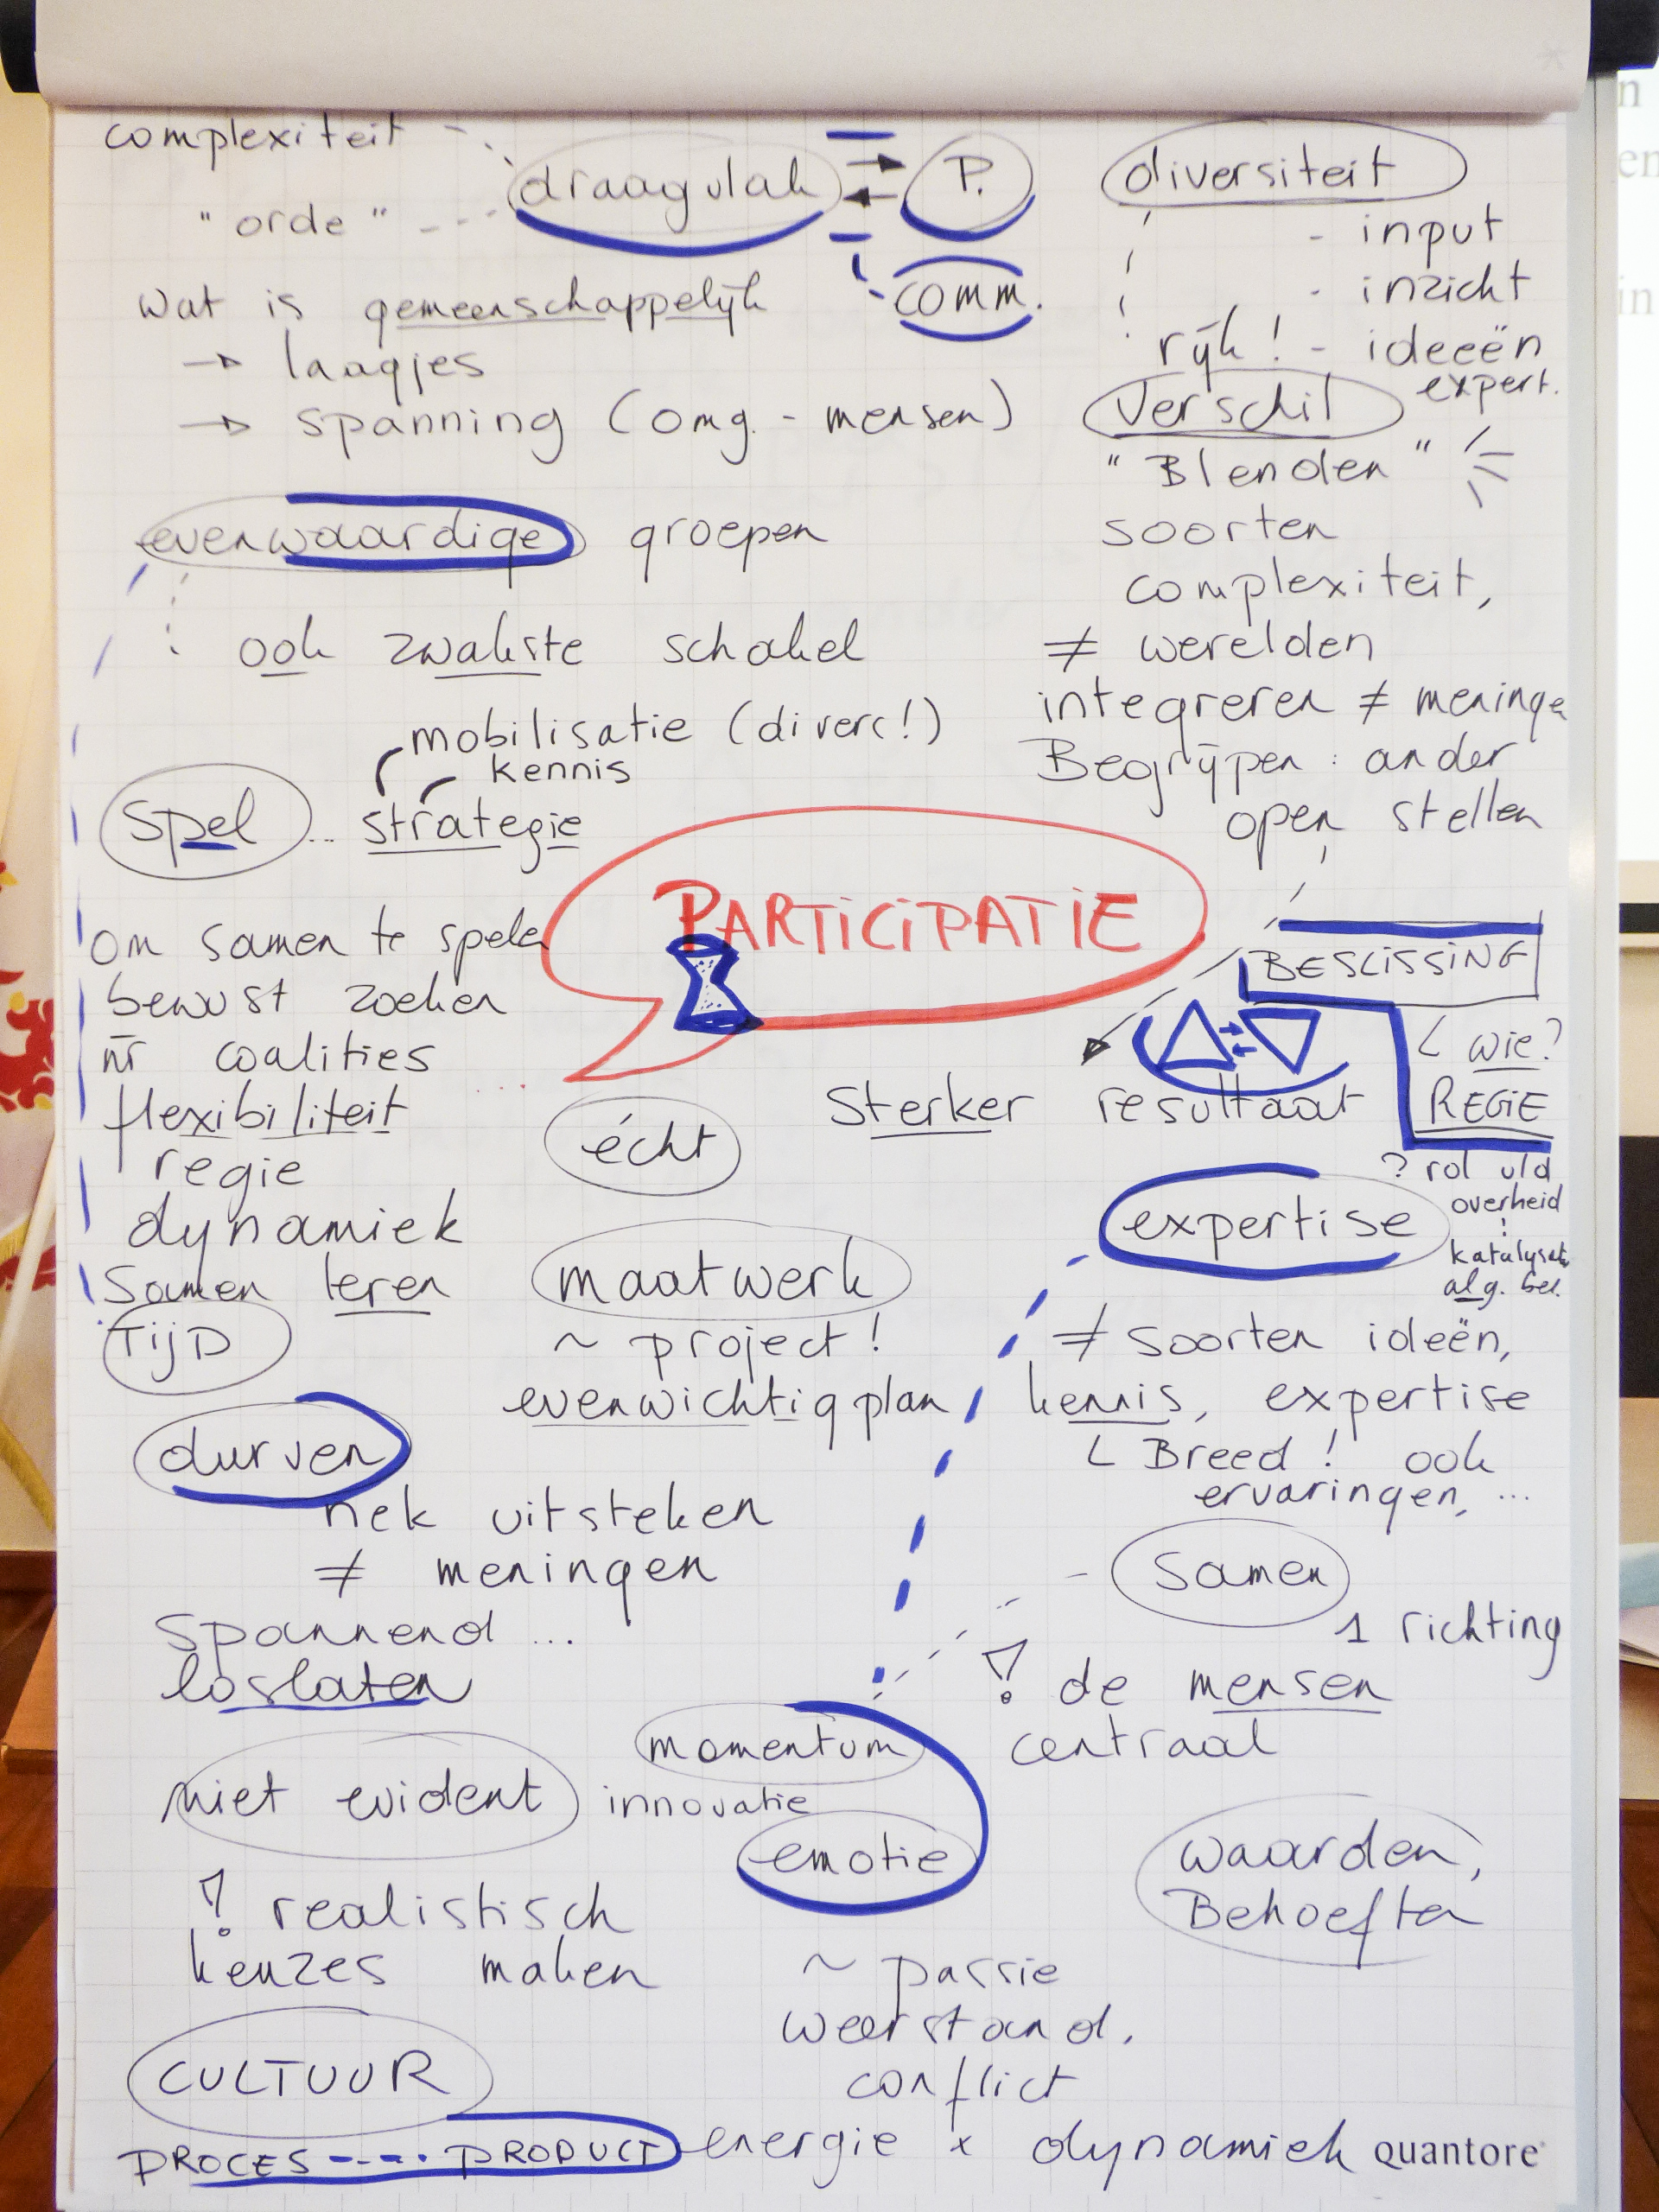 complexiteit
draagvlak
P.
"orde"
comm.
wat is gemeenschappelijk
→ laagjes
→ spanning (omg. - mensen)
diversiteit
- input
- inzicht
rijk! - ideeën
expert.
Verschil
"Blenden"
soorten
complexiteit,
≠ werelden
integreren ≠ meninge
Begrijpen: ander
open stellen
evenwaardige groepen
ook zwakste schakel
mobilisatie (divers!)
kennis
spel ... strategie
PARTICIPATIE
om samen te spelen
bewust zoeken
nr coalities
flexibiliteit
regie
dynamiek
samen leren
TIJD
BESLISSING
wie?
REGIE
? rol vld
overheid
katalysat
alg. bel.
Sterker resultaat
écht
maatwerk
~ project!
evenwichtig plan
expertise
≠ soorten ideën,
kennis, expertise
Breed! ook
ervaringen, ...
durven
nek uitsteken
≠ meningen
spannend ...
loslaten
- samen
1 richting
! de mensen
centraal
niet evident
momentum
innovatie
emotie
! realistisch
keuzes maken
waarden,
Behoeften
~ passie
weerstand,
conflict
energie x dynamiek
CULTUUR
PROCES ---- PRODUCT
quantore